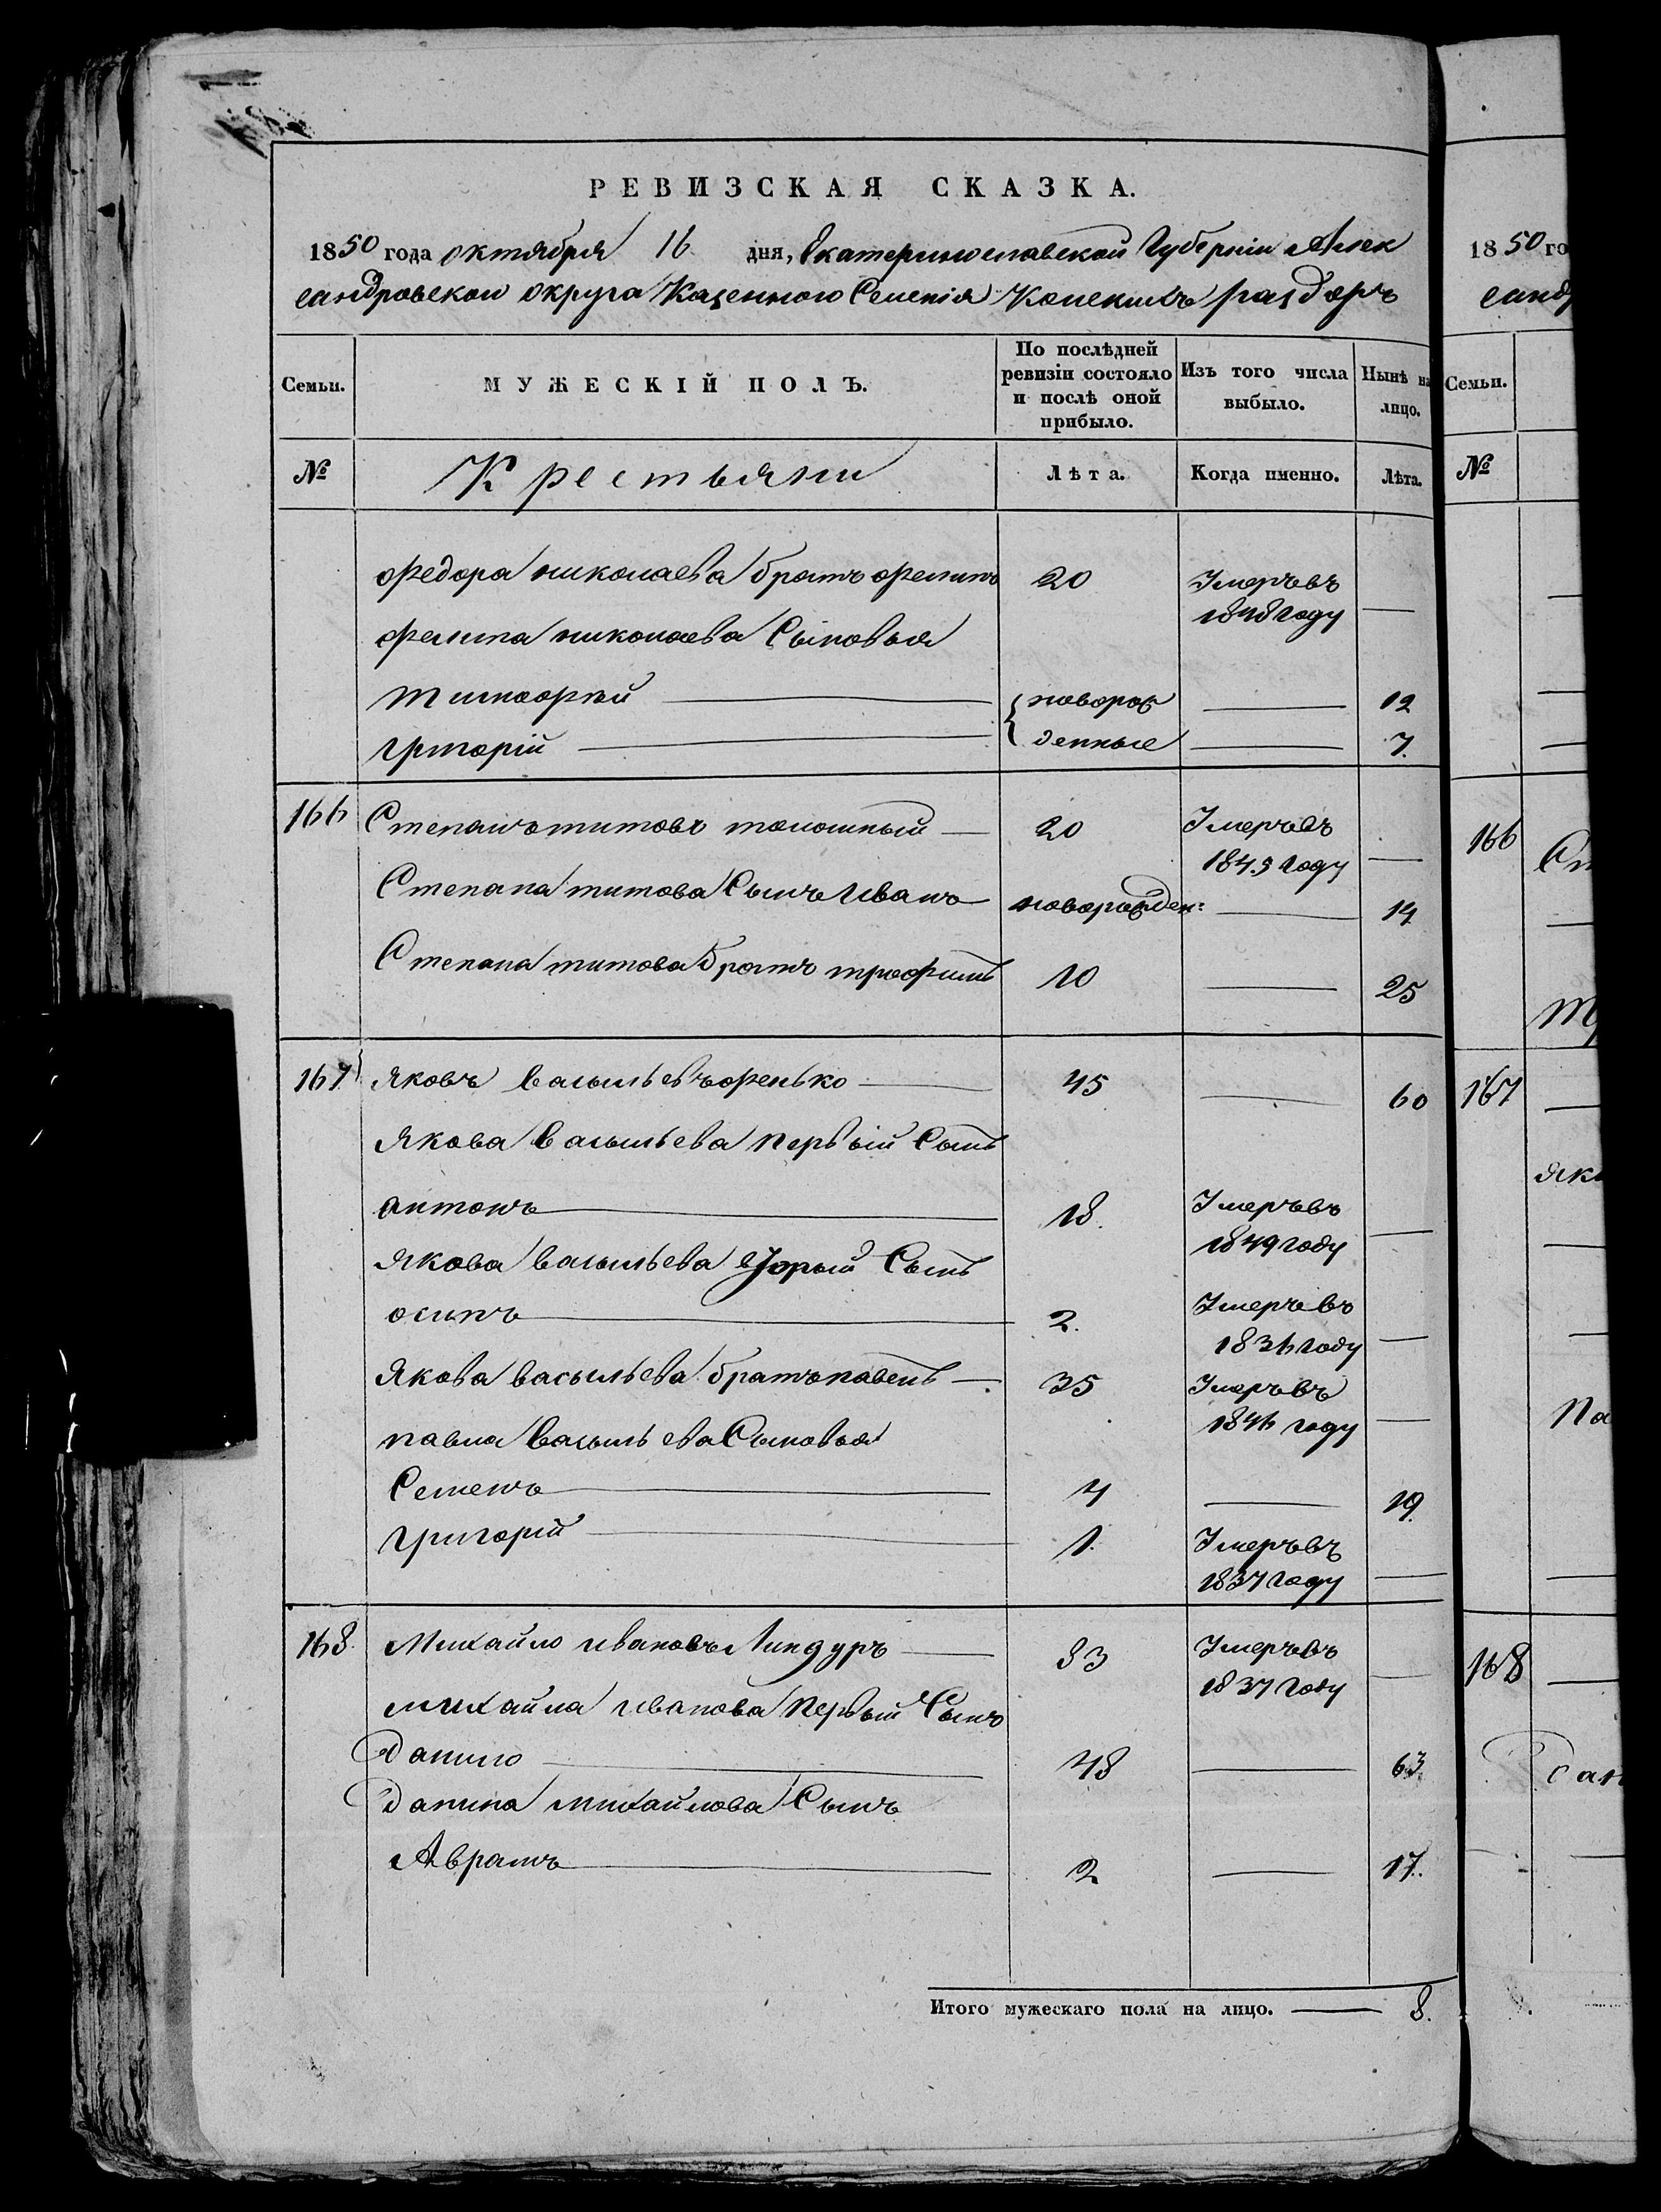 РЕВИЗСКАЯ СКАЗКА.
1850 года октября 16 дня, Екатеринославской Губерніи Алек
сандровской округа Казенного Селенія Конскихъ раздоръ
Семьи.
МУЖЕСКІЙ ПОЛЪ.
По послѣдней ревизіи состояло и послѣ оной прибыло.
Изъ того числа выбыло.
Нынѣ на лицо.
№ Крестьяни Лѣта. Когда именно. Лѣта.
Федора николаева братъ филипъ 20 Умеръ въ
1848 году —
филипа николаева Сыновья
тимофей — { новорож — 12
григорій — денные — 7.
166 Степанъ титовъ — 20 Умеръ въ
1845 году —
Степана титова Сынъ иванъ новорожден: — 14
Степана титова братъ трофимъ 10 — 25
167 яковъ васильевъ — 45 — 60
якова васильева первый Сынъ
антонъ — 18. Умеръ въ
1849 году —
якова васильева вторый Сынъ
осипъ — 2. Умеръ въ
1836 году —
якова васильева братъ павелъ — 35 Умеръ въ
1846 году —
павла васильева Сыновья
Семенъ — 4 — 19.
григорій — 1. Умеръ въ
1837 году —
168. Михайло ивановъ Линдуръ — 83 Умеръ въ
1837 году —
михайла иванова первый Сынъ
данило — 48 — 63.
данила михайлова Сынъ
Аврамъ — 2 — 17.
Итого мужескаго пола на лицо. — 8.
1850 го
санд
Семьи.
№
166 Ст
167
яко
па
168
дан